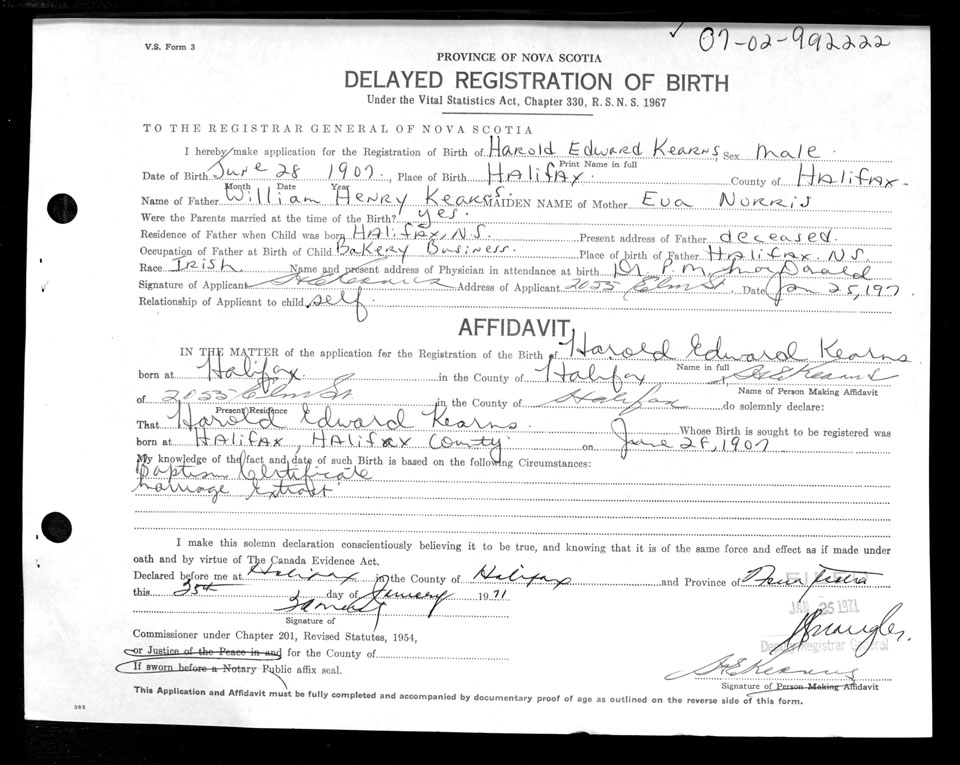 V.S. Form 3
✓ 07-02-992222
PROVINCE OF NOVA SCOTIA
DELAYED REGISTRATION OF BIRTH
Under the Vital Statistics Act, Chapter 330, R. S. N. S. 1967
TO THE REGISTRAR GENERAL OF NOVA SCOTIA
I hereby make application for the Registration of Birth of Harold Edward Kearns, Sex male.
Print Name in full
Date of Birth June 28 1907, Place of Birth Halifax. County of Halifax.
Month Date Year
Name of Father William Henry Kearns. MAIDEN NAME of Mother Eva Norris
Were the Parents married at the time of the Birth? yes.
Residence of Father when Child was born Halifax, N.S. Present address of Father deceased.
Occupation of Father at Birth of Child Bakery Business. Place of birth of Father Halifax. N.S.
Race Irish. Name and present address of Physician in attendance at birth Dr. P. M.
Signature of Applicant H E Kearns Address of Applicant 2055 Elm St. Date Jan 25, 197
Relationship of Applicant to child self.
AFFIDAVIT
IN THE MATTER of the application for the Registration of the Birth of Harold Edward Kearns
Name in full
born at Halifax in the County of Halifax H E Kearns
Name of Person Making Affidavit
of 2055 Elm St in the County of Halifax do solemnly declare:
Present Residence
That Harold Edward Kearns. Whose Birth is sought to be registered was
born at Halifax, Halifax County on June 28, 1907
My knowledge of the fact and date of such Birth is based on the following Circumstances:
Baptism Certificate
marriage Extract
I make this solemn declaration conscientiously believing it to be true, and knowing that it is of the same force and effect as if made under
oath and by virtue of The Canada Evidence Act.
Declared before me at Halifax in the County of Halifax and Province of Nova Scotia
this 25th day of January 1971
JAN 25 1971
Signature of
Commissioner under Chapter 201, Revised Statutes, 1954,
or Justice of the Peace in and for the County of
Deputy Registrar General
If sworn before a Notary Public affix seal.
H E Kearns
Signature of Person Making Affidavit
This Application and Affidavit must be fully completed and accompanied by documentary proof of age as outlined on the reverse side of this form.
365